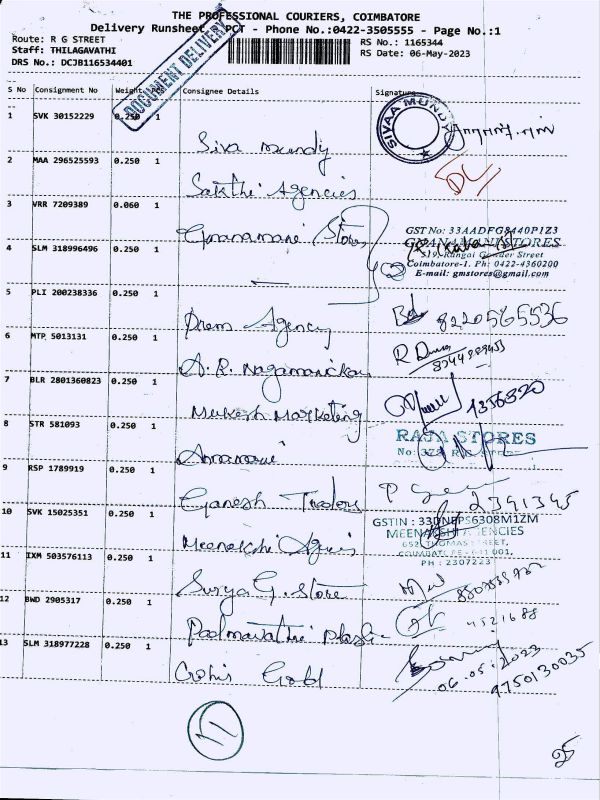 THE PROFESSIONAL COURIERS, COIMBATORE
Delivery Runsheet PCT - Phone No.:0422-3505555 - Page No.:1
Route: R G STREET
RS No.: 1165344
Staff: THILAGAVATHI
RS Date: 06-May-2023
DRS No.: DCJB116534401
DOCUMENT DELIVERY
S No Consignment No Weight Pcs Consignee Details Signature
1 SVK 30152229 0.250 1
SIVAA MUNDY
Siva mundy
2 MAA 296525593 0.250 1
Sakthi Agencies
3 VRR 7209389 0.060 1
Gnanamani Stores
GST No: 33AADFG8440P1Z3
GNANAMANI STORES
519, Rangai Gowder Street
Coimbatore-1. Ph: 0422-4360200
E-mail: gmstores@gmail.com
4 SLM 318996496 0.250 1
5 PLI 200238336 0.250 1
Prem Agency
8220565536
6 MTP 5013131 0.250 1
A. R. Nagamanickam
7 BLR 2801360823 0.250 1
Mukesh Marketing
8 STR 581093 0.250 1
RAJA STORES
Annamani
9 RSP 1789919 0.250 1
Ganesh Traders
2391345
10 SVK 15025351 0.250 1
MEENAKSHI AGENCIES
652, THOMAS STREET,
COIMBATORE - 641 001,
PH : 2307223
Meenakshi Agencies
11 IXM 503576113 0.250 1
Surya G. Store
12 BWD 2905317 0.250 1
Padmavathi Plastic
4521688
13 SLM 318977228 0.250 1
Rohir Gold
06.05.2023
9750130035
11
25